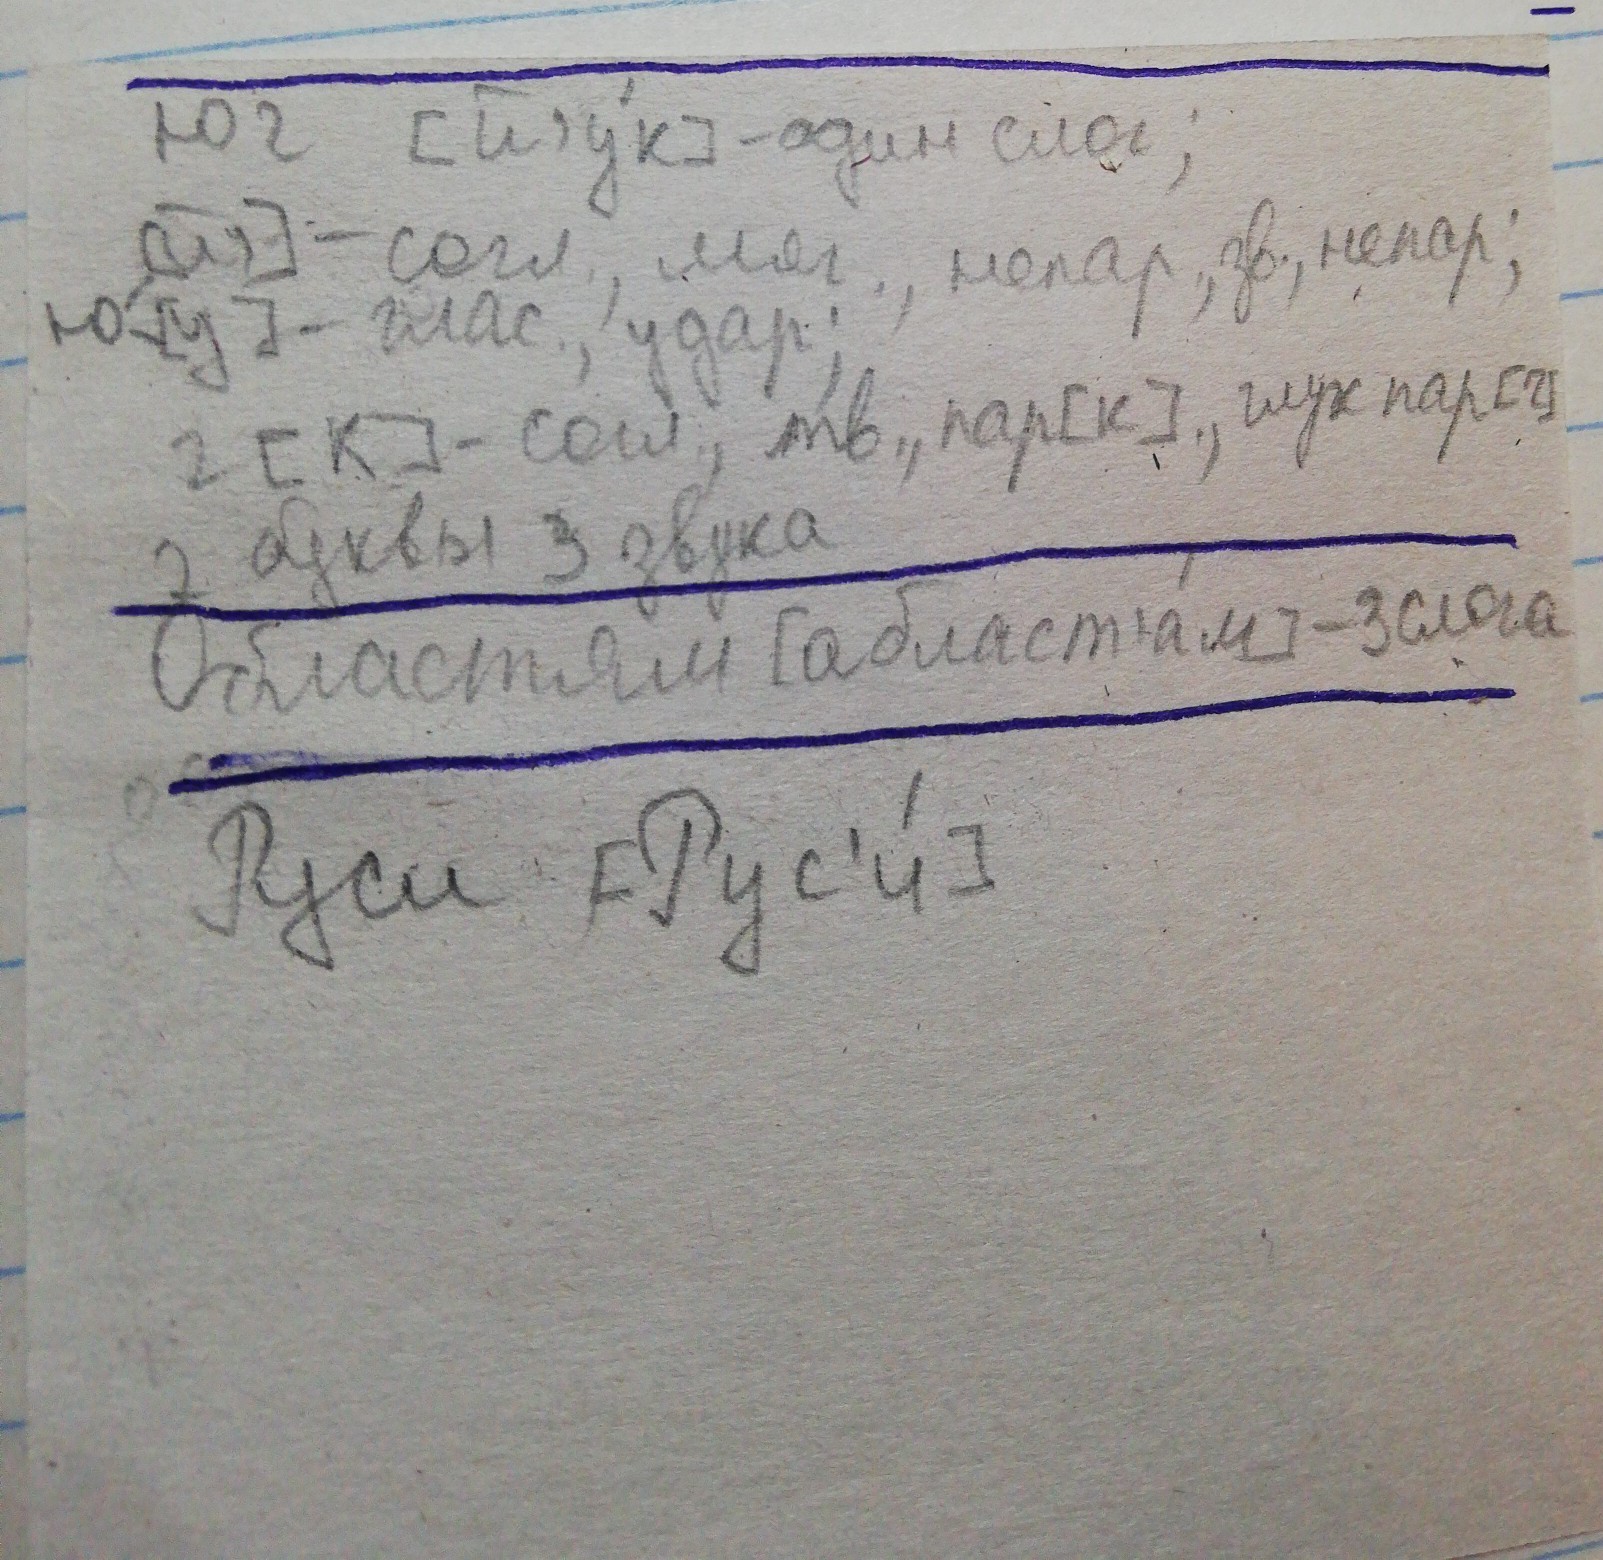 юг [й'у́к] - один слог;
[й'] - согл., мяг., непар., зв., непар;
ю [у́] - глас., удар;
г [к] - согл., тв., пар[к']., глух пар[г]
2 буквы 3 звука
Областям [абласт'а́м] - 3 слога
Руси [Рус'и́]